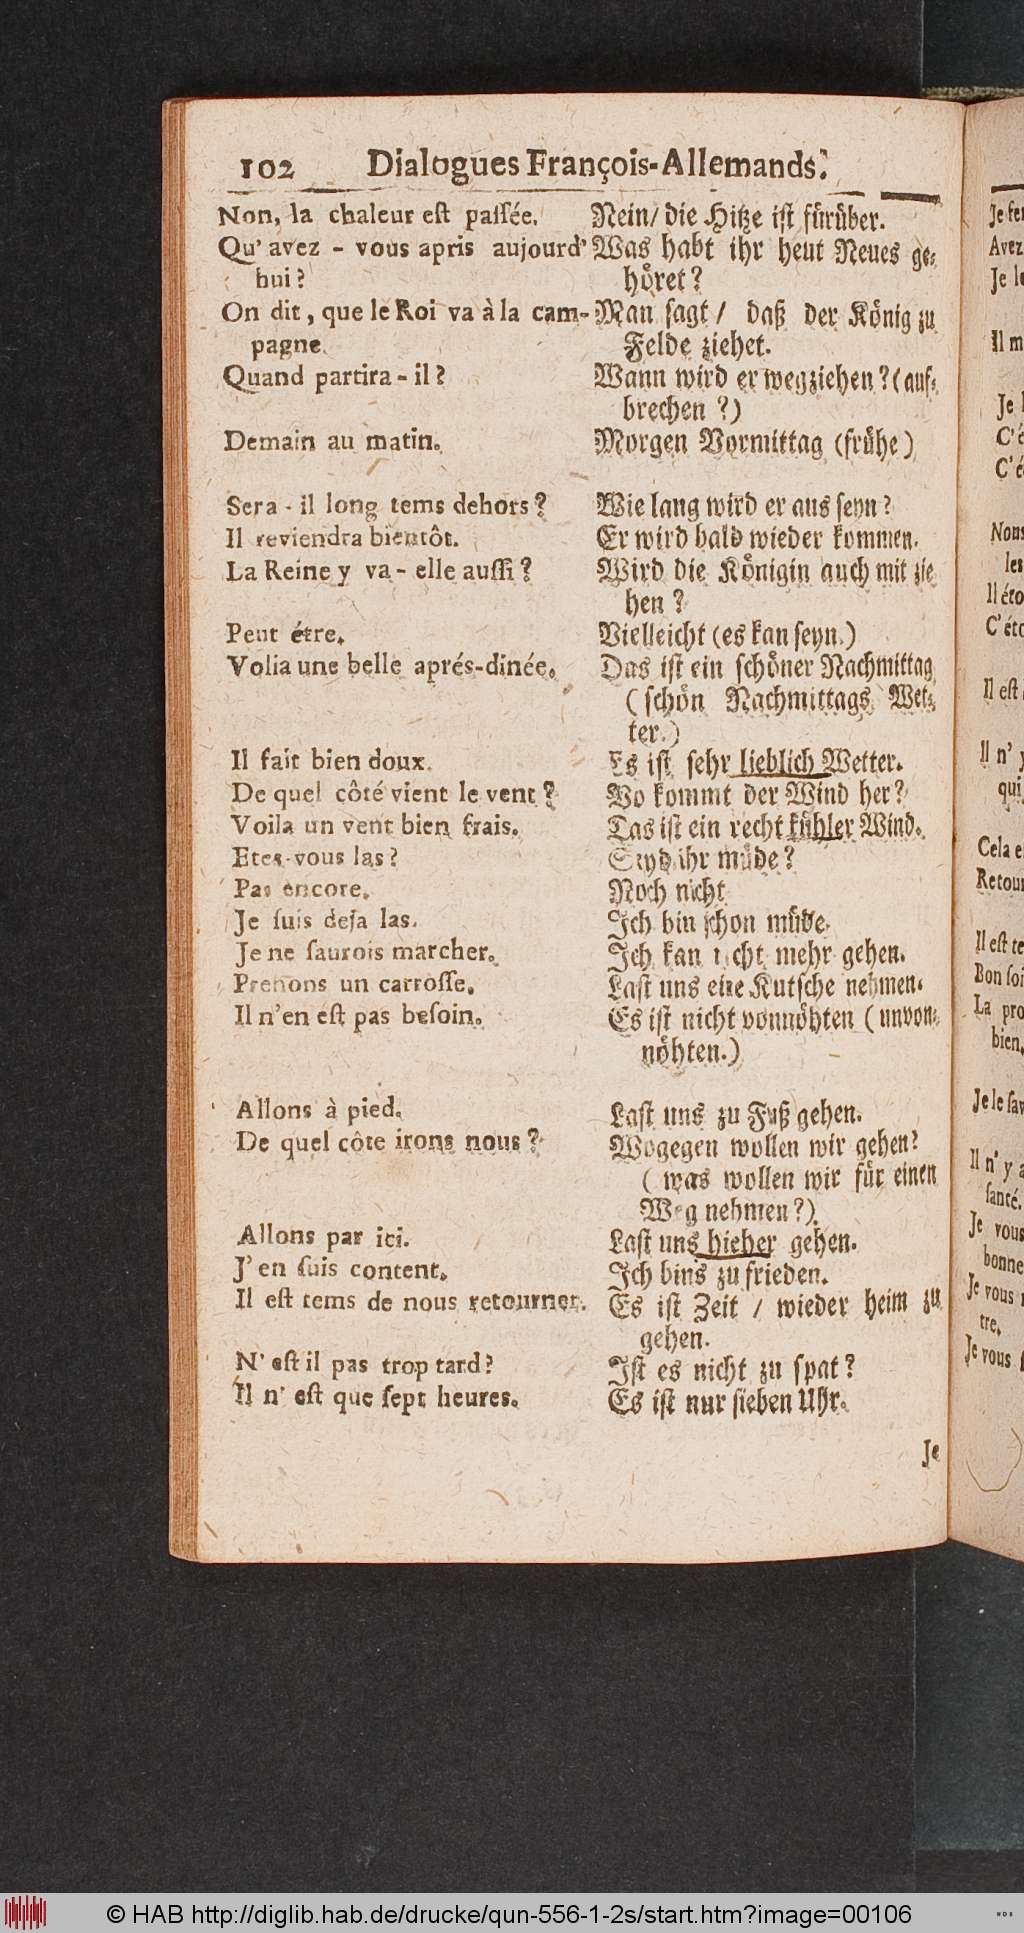 102 Dialogues François-Allemands.
Non, la chaleur est passée.
Qu' avez - vous apris aujourd'
hui?
On dit, que le Roi va à la cam-
pagne.
Quand partira - il?
Demain au matin.
Sera - il long tems dehors?
Il reviendra bientôt.
La Reine y va - elle aussi?
Peut étre.
Volia une belle aprés-dinée.
Il fait bien doux.
De quel côté vient le vent?
Voila un vent bien frais.
Etes-vous las?
Pas encore.
Je suis deja las.
Je ne saurois marcher.
Prenons un carrosse.
Il n'en est pas besoin.
Allons à pied.
De quel côte irons nous?
Allons par ici.
J' en suis content.
Il est tems de nous retourner.
N' est il pas trop tard?
Il n' est que sept heures.
Nein/ die Hitze ist fürüber.
Was habt ihr heut Neues ge-
höret?
Man sagt / daß der König zu
Felde ziehet.
Wann wird er wegziehen? (auf-
brechen?)
Morgen Vormittag (frühe)
Wie lang wird er aus seyn?
Er wird bald wieder kommen.
Wird die Königin auch mit zie
hen?
Vielleicht (es kan seyn.)
Das ist ein schöner Nachmittag
(schön Nachmittags Wet-
ter.)
Es ist sehr lieblich Wetter.
Wo kommt der Wind her?
Das ist ein recht kühler Wind.
Seyd ihr müde?
Noch nicht
Ich bin schon müde.
Ich kan nicht mehr gehen.
Last uns eine Kutsche nehmen.
Es ist nicht vonnöhten (unvon-
nöhten.)
Last uns zu Fuß gehen.
Wogegen wollen wir gehen?
(was wollen wir für einen
Weg nehmen?)
Last uns hieher gehen.
Ich bins zu frieden.
Es ist Zeit / wieder heim zu
gehen.
Ist es nicht zu spat?
Es ist nur sieben Uhr.
Je
Avez
Je
Il
Je
Nous
les
C'
Il est
Il n'
qui
Cela
Il est
Bon
La
bien,
Je le
Il n' y
santé.
Je vous
bonne
Je vous
tre,
Je vous
© HAB http://diglib.hab.de/drucke/qun-556-1-2s/start.htm?image=00106